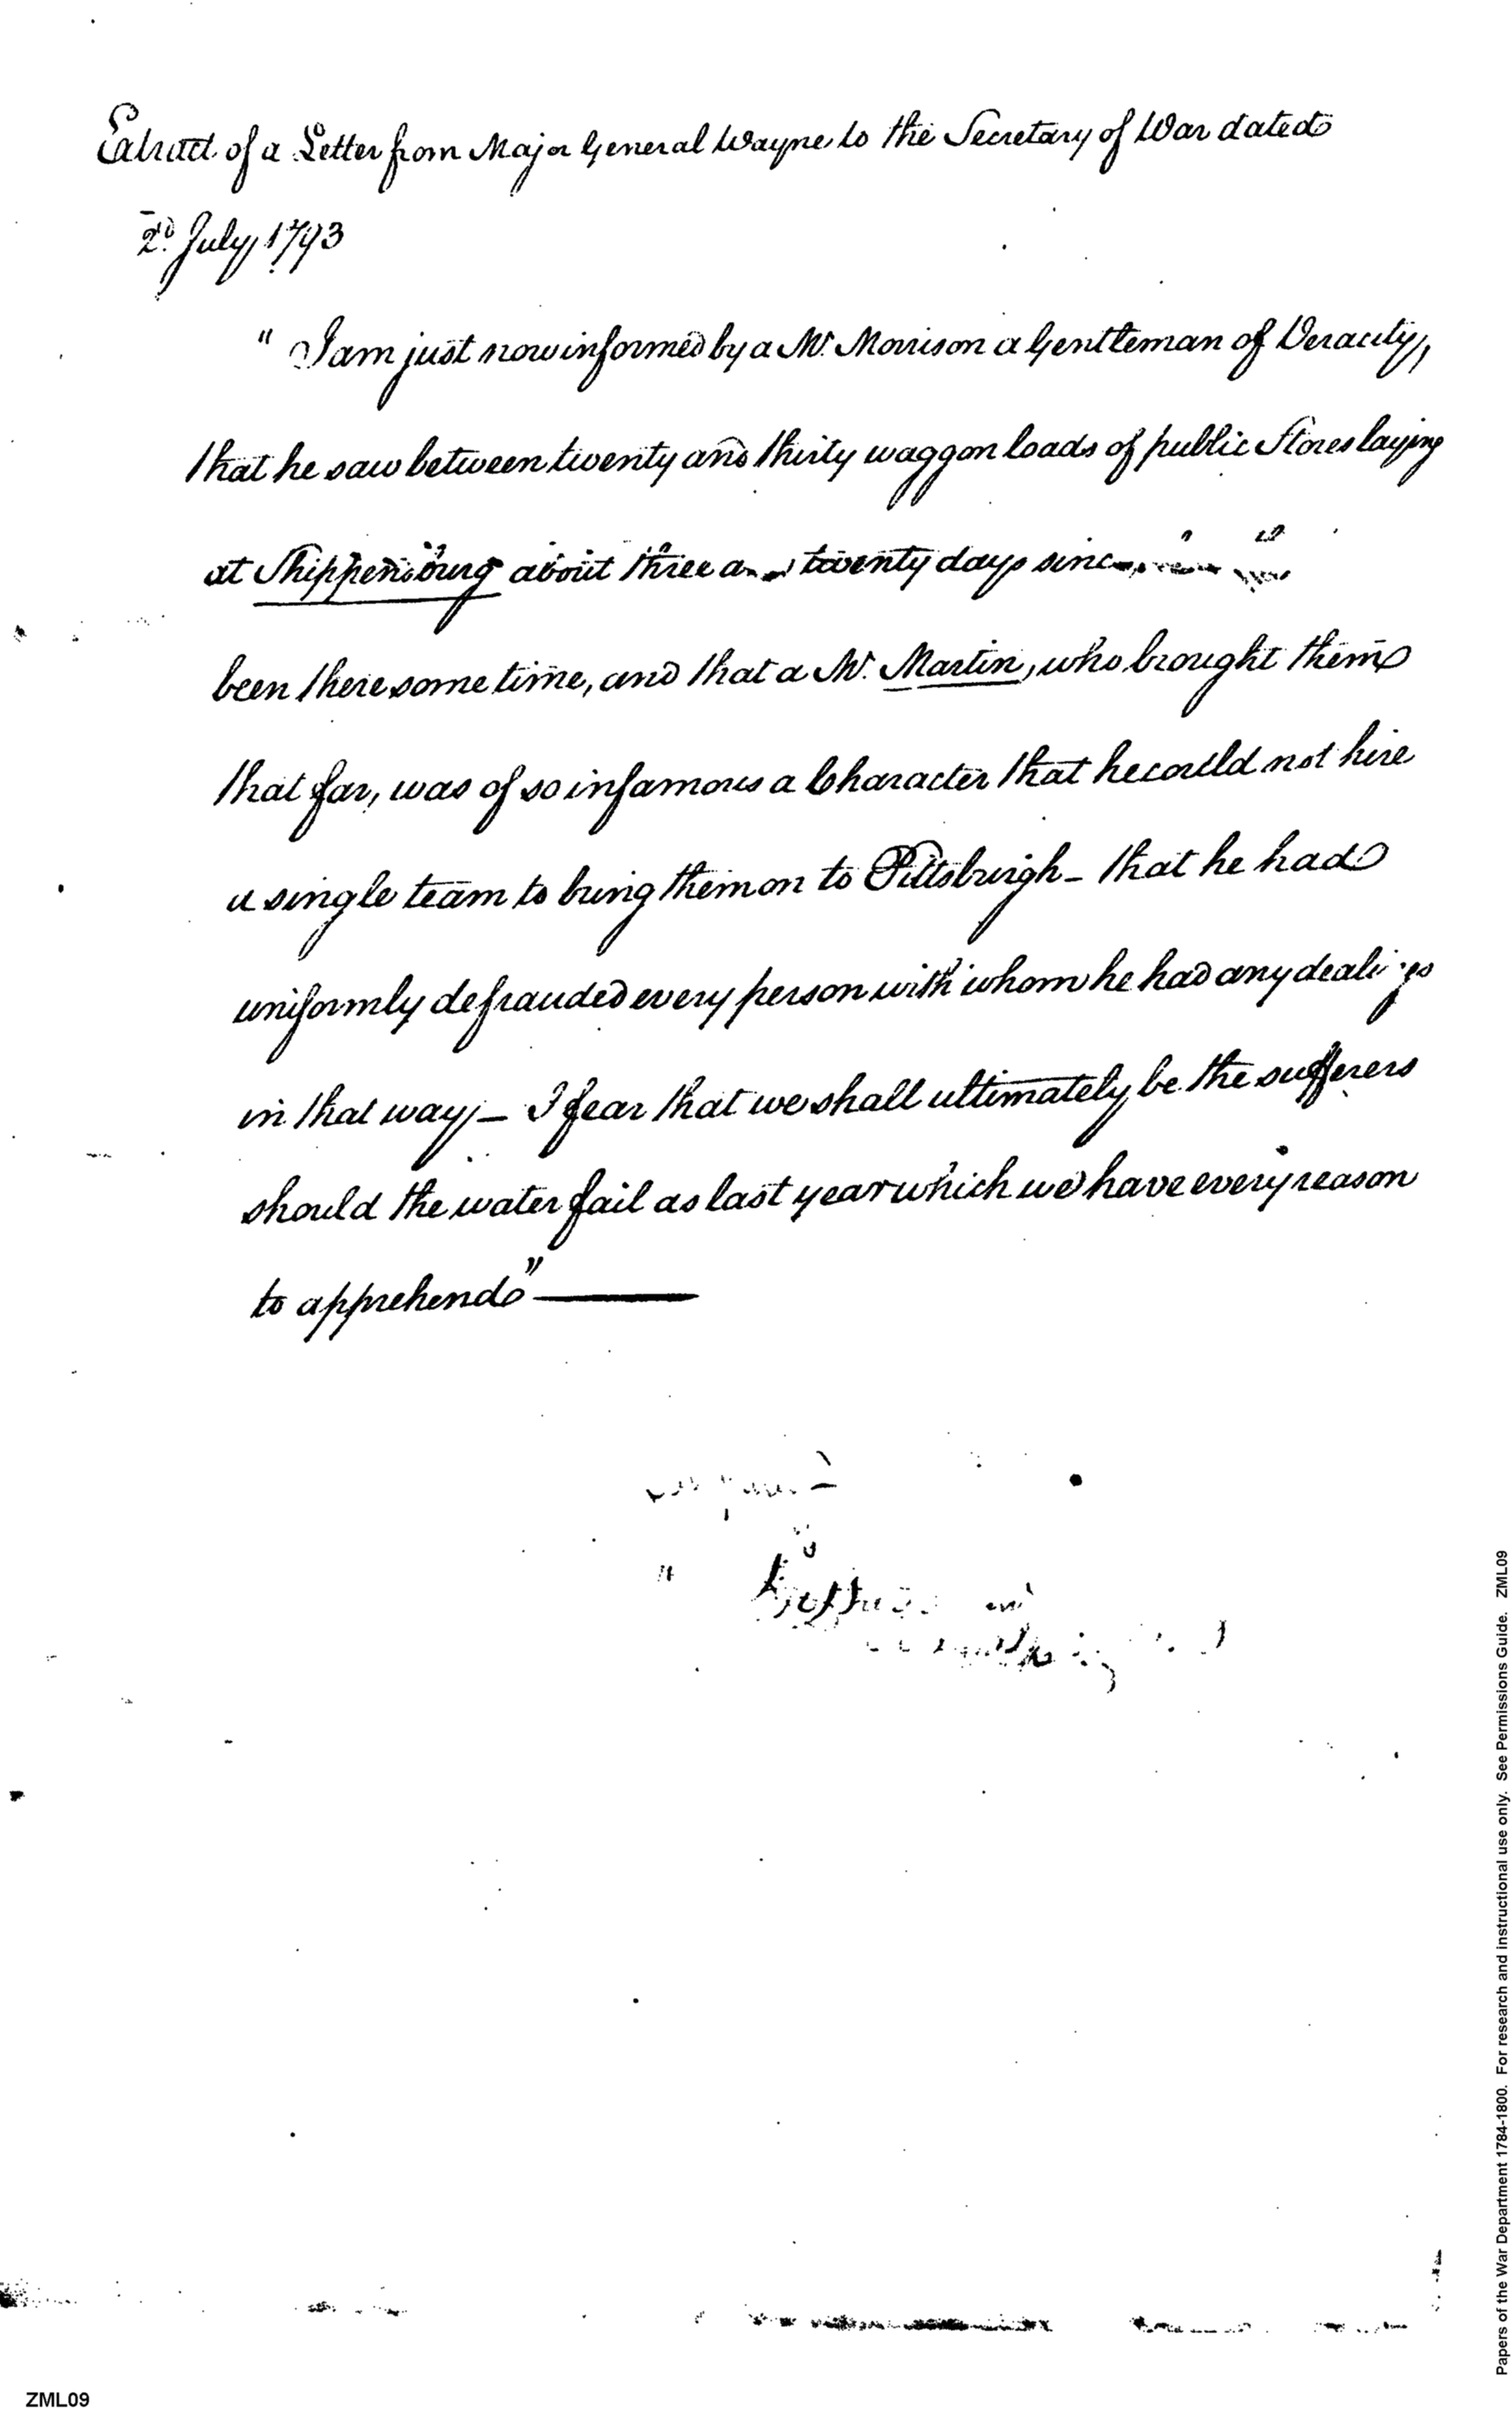 Extract of a Letter from Major General Wayne to the Secretary of War dated
2d July 1793
" I am just now informed by a Mr. Morrison a Gentleman of Veracity,
that he saw between twenty and thirty waggon loads of public Stores laying
at Shippensburg about three and twenty days since
been there some time, and that a Mr. Martin, who brought them
that far, was of so infamous a Character that he could not hire
a single team to bring them on to Pittsburgh - that he had
uniformly defrauded every person with whom he had any dealings
in that way - I fear that we shall ultimately be the sufferers
should the water fail as last year which we have every reason
to apprehend"
Papers of the War Department 1784-1800. For research and instructional use only. See Permissions Guide. ZML09
ZML09